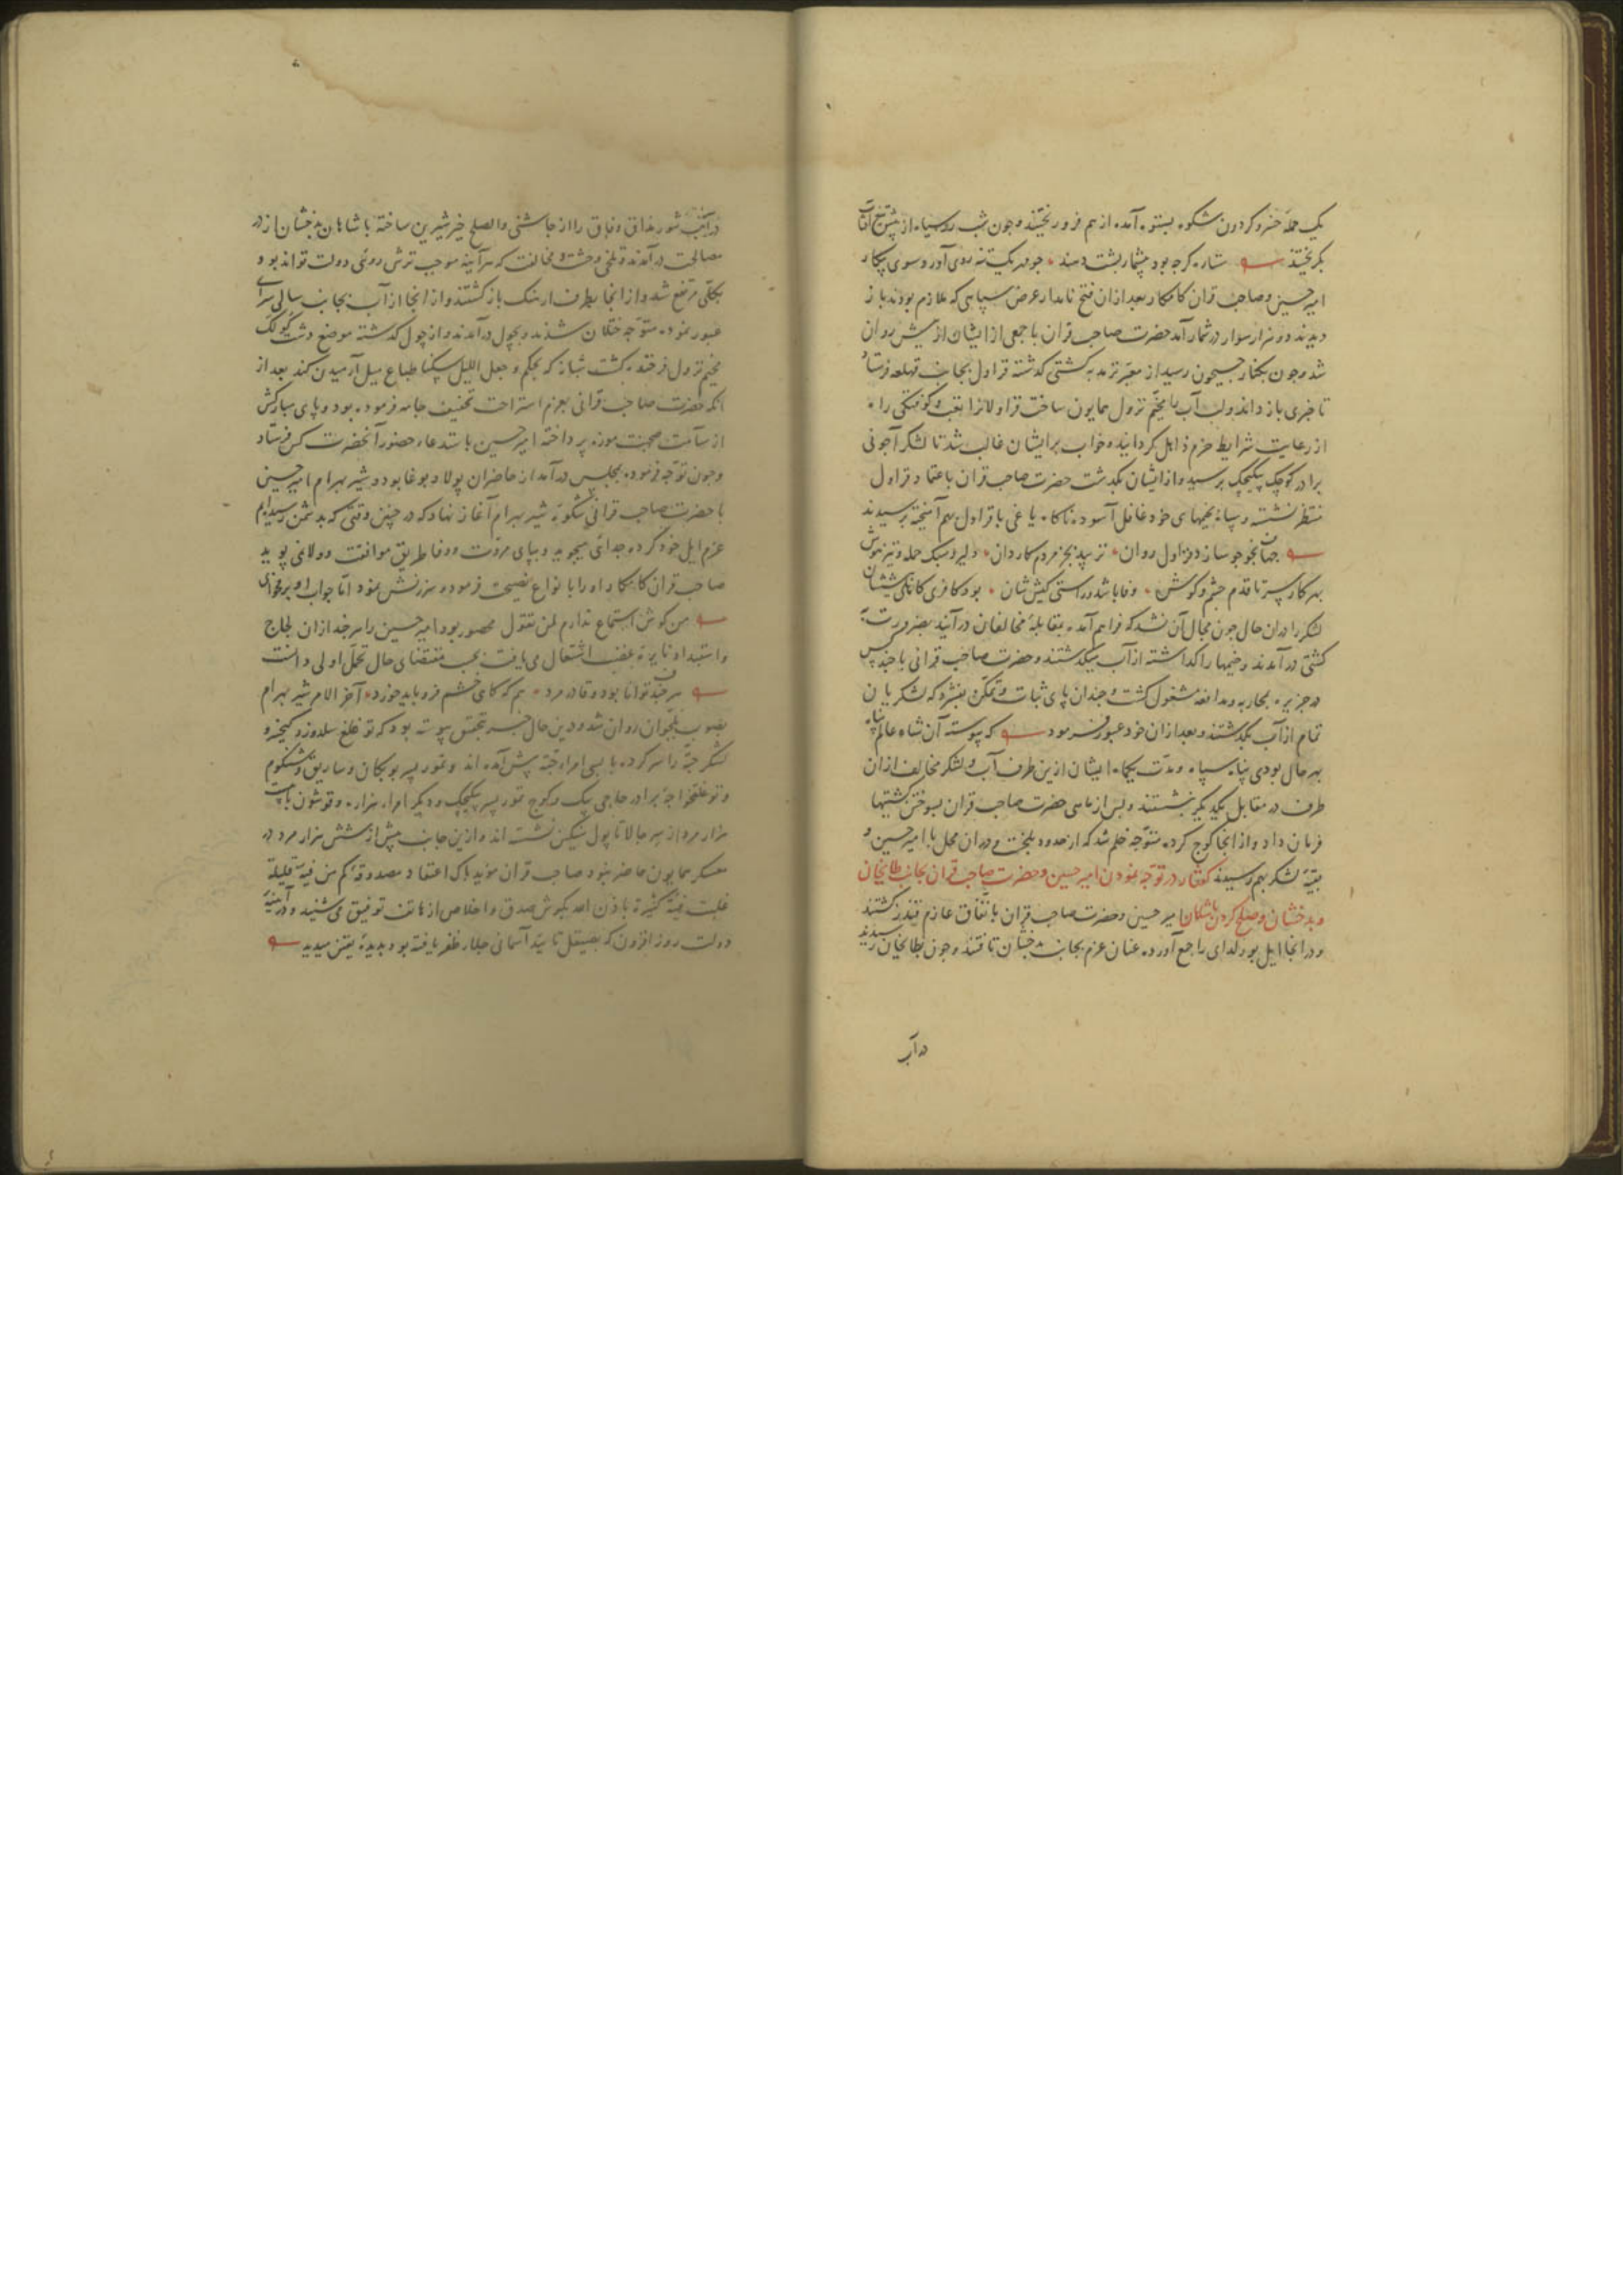 یک حمله خسرو کردون شکوه بستوه آمده از هم فرو ریختند و چون شب روسیاه از تیغ آفتاب
بکریختند ستاره کرچه بود بیشمار پشت دهند چو مهر یک تنه روی آورد سوی پیکار
امیر حسین و صاحب قران کامکار بعد از ان فتح نامدار عرض سپاهی که ملازم بودند باز
دیدند دو هزار سوار در شمار آمد حضرت صاحب قران با جمعی از ایشان از پیش روان
شد و چون بکنار جیحون رسید از معبر ترمد به کشتی کذشته قراول بجانب قهلغه فرستاد
تا خبری باز داند و لب آب مخیم نزول همایون ساخت قراولانرا تعب و کوفتکی راه
از رعایت شرایط حزم ذاهل کردانیده خواب بر ایشان غالب شد تا لشکر آجونی
برادر کوچک بیکیجک برسید و از ایشان بکدشت حضرت صاحب قران باعتماد قراول
منتظر نشسته و سپاه بخیمهای خود غافل آسوده ناکاه یاغی با قراول بهم آمیخته برسیدند
جهانجو جو سازد قراول روان نزیبد بجز مردم کاردان دلیر و سبک حمله و تیز هوش
بهر کار سر تا قدم چشم و کوش وفا باشد و راستی کیش شان
لشکر را در ان حال چون مجال آن نشد که فراهم آمده بمقابله مخالفان درآیند بضرورت
کشتی درآمدند و خیمها را کذاشته از آب بکدشتند و حضرت صاحب قرانی با چند کس
در جزیره بمحاربه و مدافعه مشغول کشت و چندان پای ثبات و تمکن بفشرد که لشکریان
تمام از آب بکدشتند و بعد از ان خود عبور فرمود که پیوسته آن شاه عالم پناه
بهر حال بودی پناه سپاه و مدت یکماه ایشان ازین طرف آب و لشکر مخالف از ان
طرف در مقابل یکدیکر بنشستند و پس از ماهی حضرت صاحب قران بسوختن کشتیها
فرمان داد و از انجا کوچ کرده متوجه خلم شد که از حدود بلخست و در ان محل با امیر حسین و
بقیه لشکر بهم رسیدند کفتار در توجه نمودن امیر حسین و حضرت صاحب قران بجانب طایخان
و بدخشان و صلح کردن با شاهان امیر حسین و حضرت صاحب قران باتفاق عازم قندز کشتند
و در انجا ایل بورلدای را جمع آورده عنان عزم بجانب بدخشان تافتند و چون بطایخان رسیدند
در آب
مذاق وفاق را از چاشنی والصلح خیر شیرین ساخته با شاهان بدخشان از در
مصالحت درآمدند و تلخی وحشت و مخالفت که هر آینه موجب ترش روئی دولت تواند بود
بکلی مرتفع شد و از انجا بطرف ارهنک باز کشتند و از انجا از آب بجانب سالی سرای
عبور نموده متوجه ختلان شدند و بچول درآمدند و از چول کذشته موضع دشت کولک
مخیم نزول فرخنده کشت شبانه که بحکم و جعل اللیل سکنا طباع میل آرمیدن کند بعد از
انکه حضرت صاحب قرانی بعزم استراحت تخفیف جامه فرموده بود و پای مبارکش
از سآمت صحبت موزه پرداخته امیر حسین باستدعاء حضور آنحضرت کس فرستاد
و چون توجه فرموده بمجلس درآمد از حاضران پولاد بوغا بود و شیر بهرام امیر حسین
با حضرت صاحب قرانی شکوه شیر بهرام آغاز نهاد که در چنین وقتی که بدشمن رسیدیم
عزم ایل خود کرده جدائی میجوید و بپای مروت و وفا طریق موافقت و ولا نمی پوید
صاحب قران کامکار او را بانواع نصیحت فرموده سرزنش نمود اما جواب او
من کوش استماع ندارم لمن تقول محصور بود امیر حسین را هر چند از ان لجاج
و استبداد نایره غضب اشتعال می یافت بحسب مقتضای حال تحمل اولی دانست
هر چند توانا بود و قادر مرد هم که کاهی خشم فرو باید خورد آخر الامر شیر بهرام
بصوب بلجوان روان شد و درین حال خبر بتحقیق پیوسته بود که توغلغ سلدوز و کیخسرو
لشکر جته را سر کرده با بسی امراء جته پیش آمده اند و تمور پسر بوبکان و ساریق و شنکوم
و توغلغ خواجه برادر حاجی بیک و کوچ تمور پسر بیکیجک و دیکر امراء هزاره و قوشون با بیست
هزار مرد از سر جالا تا پول سنکین نشسته اند و ازین جانب بیش از شش هزار مرد در
معسکر همایون حاضر نبود صاحب قران مؤید پاک اعتقاد مصدوقه کم من فئة قلیلة
غلبت فئة کثیرة باذن الله بکوش صدق و اخلاص از هاتف توفیق می شنید و در آیینه
دولت روز افزون که بصیقل تایید آسمانی جلاء ظفر یافته بود بدیده یقین میدید